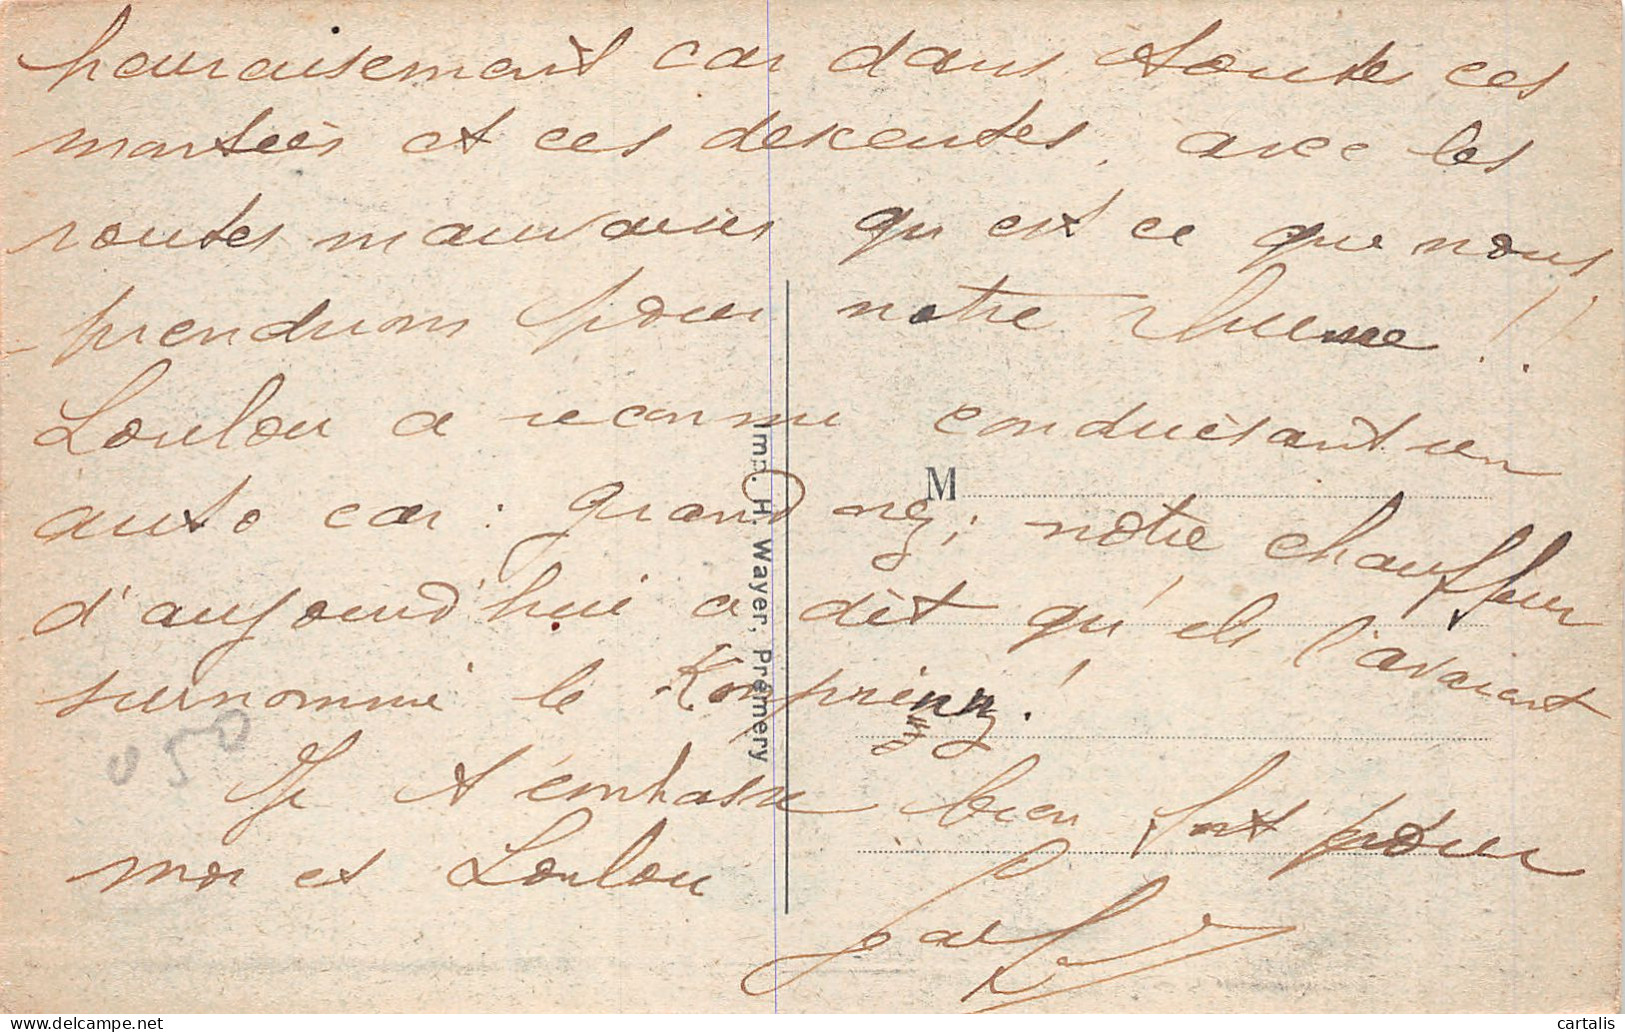 heuraisement car dans toutes ces
montées et ces descentes, avec les
routes mauvaises qu est ce que nous
prendrions pour notre rhume !!
Loulou a reconnu conduisant un
auto car : grand nez, notre chauffeur
d'aujourd'hui a dit qu'ils l'avaient
surnommé le Konprinz !
Je t'embrasse bien fort pour
moi et Loulou
M
Imp. H. Wayer, Prémery
050
delcampe.net
cartalis